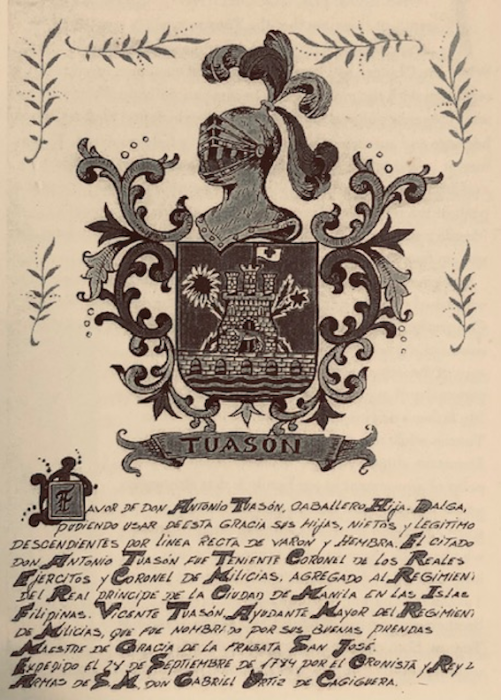 TUASÓN
FAVOR DE DON ANTONIO TUASÓN, CABALLERO HIJA. DALGA,
PUDIENDO USAR DE ESTA GRACIA SUS HIJAS, NIETOS Y LEGITIMO
DESCENDIENTES POR LINEA RECTA DE VARON Y HEMBRA. EL CITADO
DON ANTONIO TUASÓN FUE TENIENTE CORONEL DE LOS REALES
EJERCITOS Y CORONEL DE MILICIAS, AGREGADO AL REGIMIENT
DEL REAL PRINCIPE DE LA CIUDAD DE MANILA EN LAS ISLAS
FILIPINAS. VICENTE TUASÓN, AYUDANTE MAYOR DEL REGIMIENT
DE MILICIAS, QUE FUE NOMBRIDO POR SUS BUENAS PRENDAS
MAESTRE DE GRACIA DE LA FRAGATA SAN JOSÉ.
EXPEDIDO EL 24 DE SEPTIEMBRE DE 1784 POR EL CRONISTA Y REY
ARMAS DE S. M. DON GABRIEL ORTIZ DE CAGIGUERA.